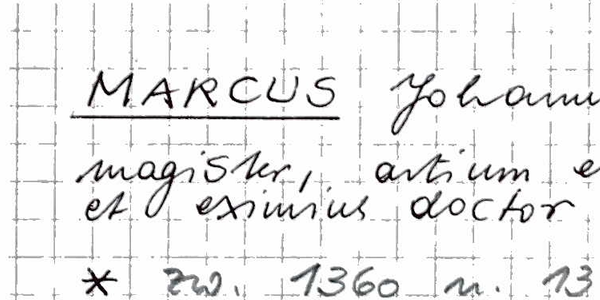 MARCUS Johann
magister, artium e
et eximius doctor
* zw. 1360 u. 13